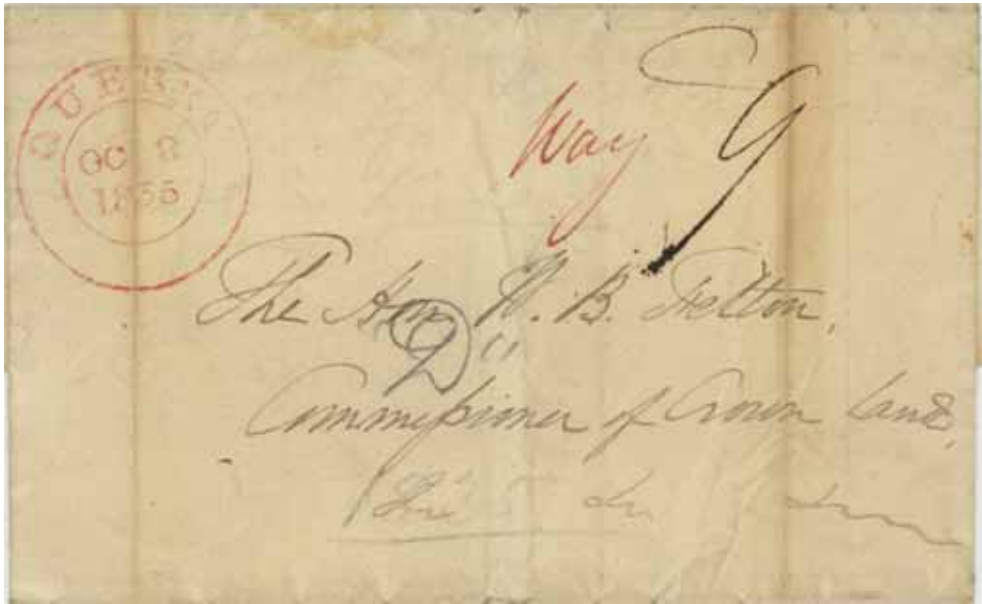 QUEBEC
OCT 2
1835
Way 9
The Hon. W. B. Felton,
Commissioner of Crown Lands,